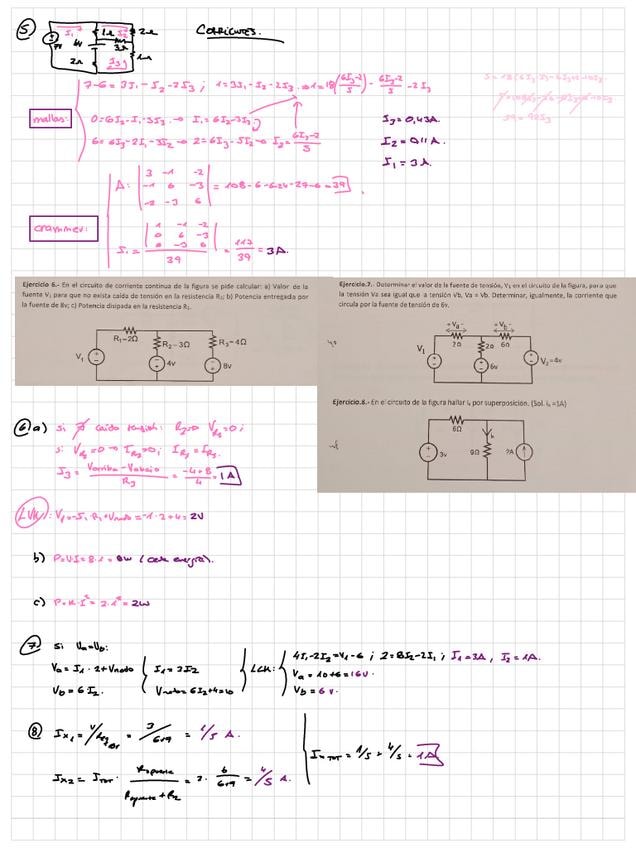 5
CORRIENTES.
I₁
1Ω
2Ω
7V
6V
3Ω
1Ω
2Ω
I3
7-6 = 3I₁-I₂-2I3 ; 1=3I₁-I₂-2I3
mallas:
0=6I₂-I₁-3I3 → I₁=6I₂-3I3
6=6I3-2I₁-3I₂
I3=0,43A.
I₂=0,11A.
I₁=3A.
39=90I3
Δ: | 3 -1 -2 |
| -1 6 -3 | = 108-6-6-24-27-6=39
| -2 -3 6 |
crammer:
I₁= | 1 -1 -2 |
| 0 6 -3 |
| 6 -3 6 |
39
= 117/39 = 3A.
Ejercicio 6.- En el circuito de corriente continua de la figura se pide calcular: a) Valor de la
fuente V₁ para que no exista caída de tensión en la resistencia R₂; b) Potencia entregada por
la fuente de 8v; c) Potencia disipada en la resistencia R₁.
R₁=2Ω
R₂=3Ω
R₃=4Ω
V₁
4v
8v
Ejercicio.7.- Determinar el valor de la fuente de tensión, V₁ en el circuito de la figura, para que
la tensión Va sea igual que a tensión Vb, Va = Vb. Determinar, igualmente, la corriente que
circula por la fuente de tensión de 6v.
+Va-
+Vb-
2Ω
2Ω
6Ω
V₁
6v
V₂=4v
Ejercicio.8.- En el circuito de la figura hallar iₓ por superposición. (Sol. iₓ =1A)
6Ω
iₓ
3v
9Ω
2A
6 a) si caída tensión: R₂→ V_R₂=0;
si V_R₂=0 → I_R₂=0; I_R₁=I_R₃.
I3= Varriba-Vabajo / R3 = -4+8 / 4 = 1A
LVK: V₁=-I₁·R₁+Vnodo=-1·2+4=2V
b) P=V·I=8·1=8w (cede energía).
c) P=R·I²=2·1²=2w
7 Si Va=Vb:
Va=I₁·2+Vnodo
I₁=3I2
Vb=6I₂.
Vnodo=6I2+4=10
LCK:
4I₁-2I₂=V₁-6 ; 2=8I₂-2I₁ ; I₁=3A, I₂=1A.
Va=10+6=16V.
Vb=6V.
8 Ix₁ = V/Req = 3/6+9 = 1/5 A.
Ix2 = ITOT · Ropuesta / Ropuesta+R2 = 2 · 6/6+9 = 4/5 A.
Ix TOT = 1/5 + 4/5 = 1A